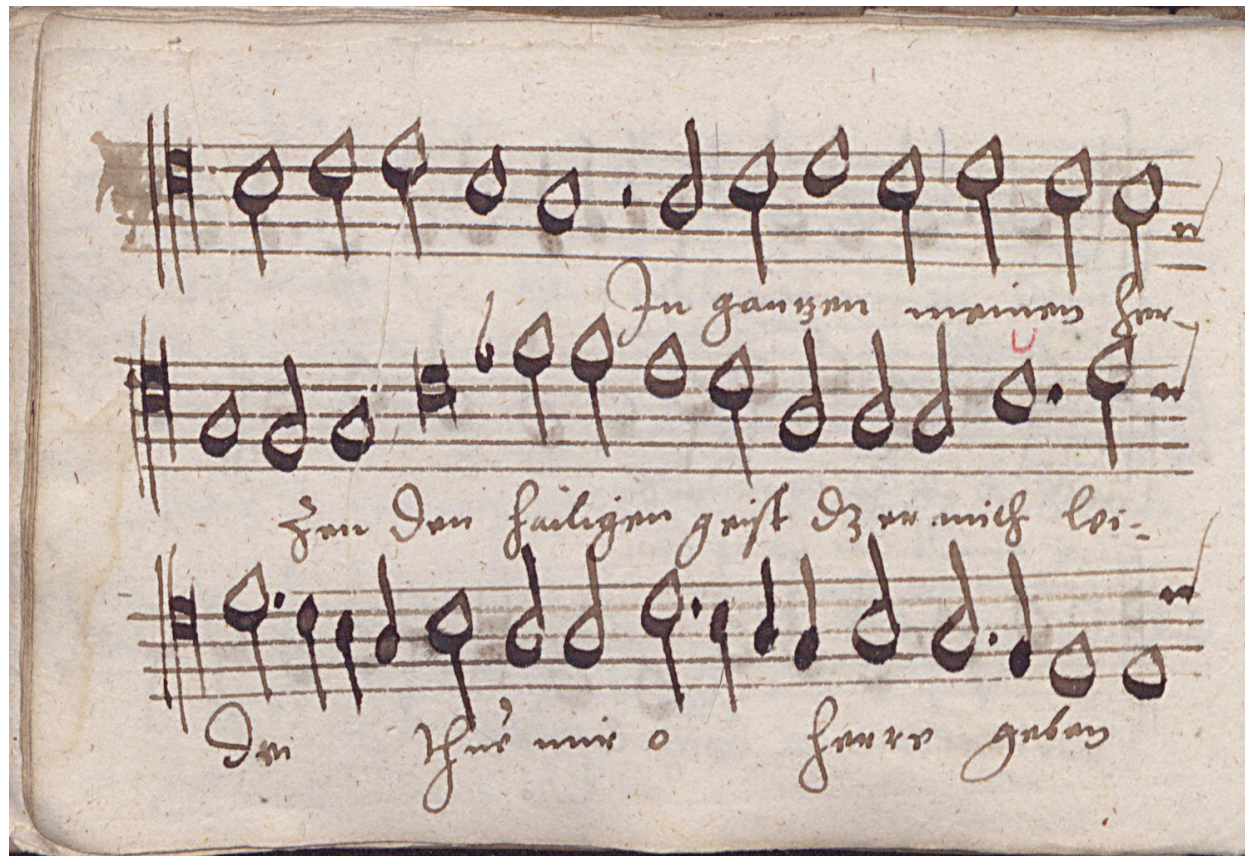 In gantzen meinen her-
zen den hailigen geist dz er mich lei-
dei thue mir o herre geben